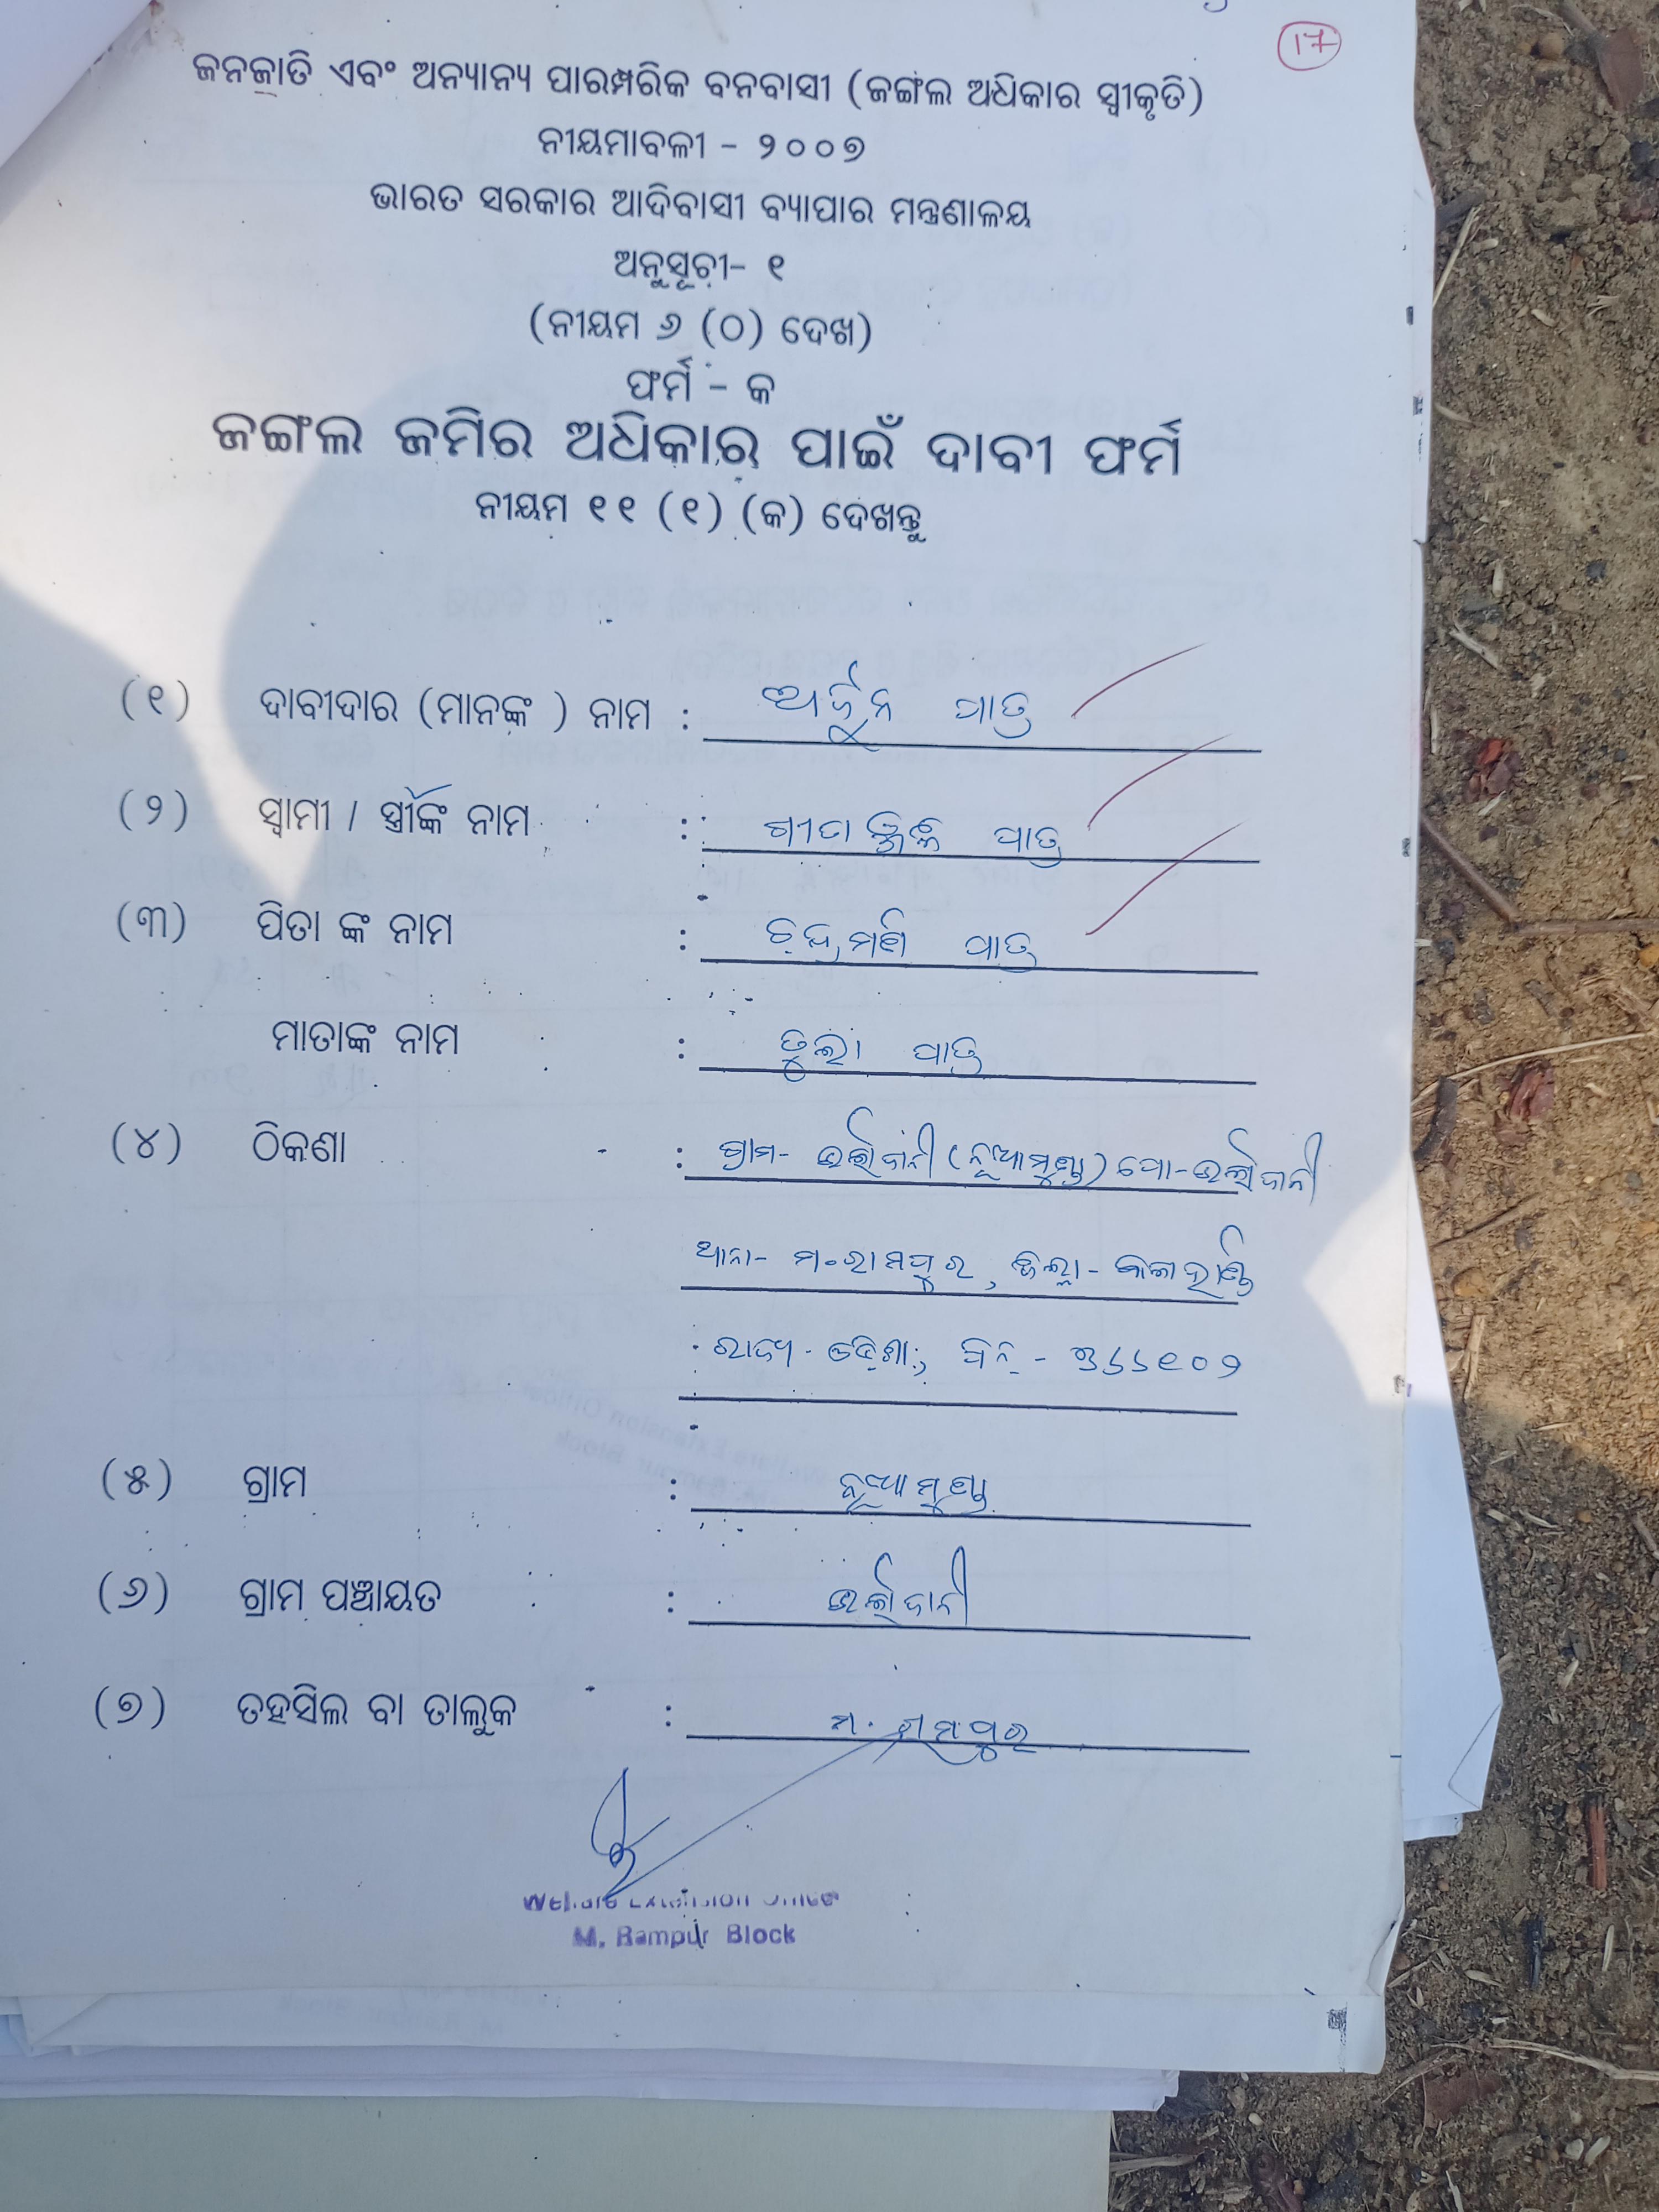 17
ଜନଜାତି ଏବଂ ଅନ୍ୟାନ୍ୟ ପାରମ୍ପରିକ ବନବାସୀ (ଜଙ୍ଗଲ ଅଧିକାର ସ୍ୱୀକୃତି)
ନୀୟମାବଳୀ - ୨୦୦୭
ଭାରତ ସରକାର ଆଦିବାସୀ ବ୍ୟାପାର ମନ୍ତ୍ରଣାଳୟ
ଅନୁସୂଚୀ- ୧
(ନୀୟମ ୬ (ଠ) ଦେଖ)
ଫର୍ମ - କ
ଜଙ୍ଗଲ ଜମିର ଅଧିକାର ପାଇଁ ଦାବୀ ଫର୍ମ
ନୀୟମ ୧୧ (୧) (କ) ଦେଖନ୍ତୁ
(୧) ଦାବୀଦାର (ମାନଙ୍କ ) ନାମ : ଅର୍ଜୁନ ପାତ୍ର
(୨) ସ୍ୱାମୀ / ସ୍ତ୍ରୀଙ୍କ ନାମ : ଗୀତାଞ୍ଜଳି ପାତ୍ର
(୩) ପିତା ଙ୍କ ନାମ : ଚନ୍ଦ୍ରମଣି ପାତ୍ର
ମାତାଙ୍କ ନାମ : ତୁଲା ପାତ୍ର
(୪) ଠିକଣା : ଗ୍ରାମ- (ନୂଆମୁଣ୍ଡା) ପୋ-
ଥାନା- ମ.ରାମପୁର, ଜିଲ୍ଲା- କଳାହାଣ୍ଡି
ରାଜ୍ୟ- ଓଡ଼ିଶା, ପିନ୍ - ୭୬୬୧୦୨
(୫) ଗ୍ରାମ : ନୂଆମୁଣ୍ଡା
(୬) ଗ୍ରାମ ପଞ୍ଚାୟତ :
(୭) ତହସିଲ ବା ତାଲୁକ : ମ. ରାମପୁର
Welfare Extension Officer
M. Rampur Block